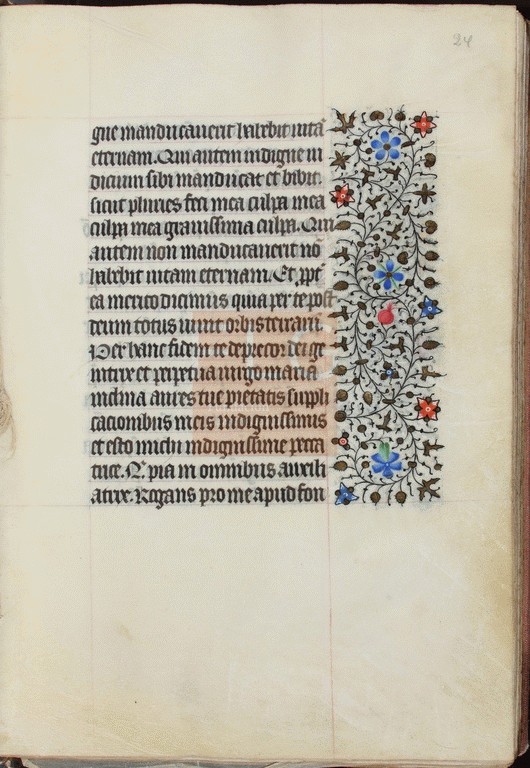 24
gne manducauerit habebit uitā
eternam. Qui autem indigne iu
dicium sibi manducat et bibit.
sicut pluries feci mea culpa mea
culpa mea grauissima culpa. Qui
autem non manducauerit nō
habebit uitam eternam. Et ppt̄
ea merito dicimus quia per te post
deum totus uiuit orbis terrarū.
Per hanc fidem te deprecor dei ge
nitrix et perpetua uirgo maria
inclina aures tue pietatis suppli
cacionibus meis indignissimis
et esto michi indignissime pecca
trice. O pia in omnibus auxili
atrix. Rogans pro me apud fon